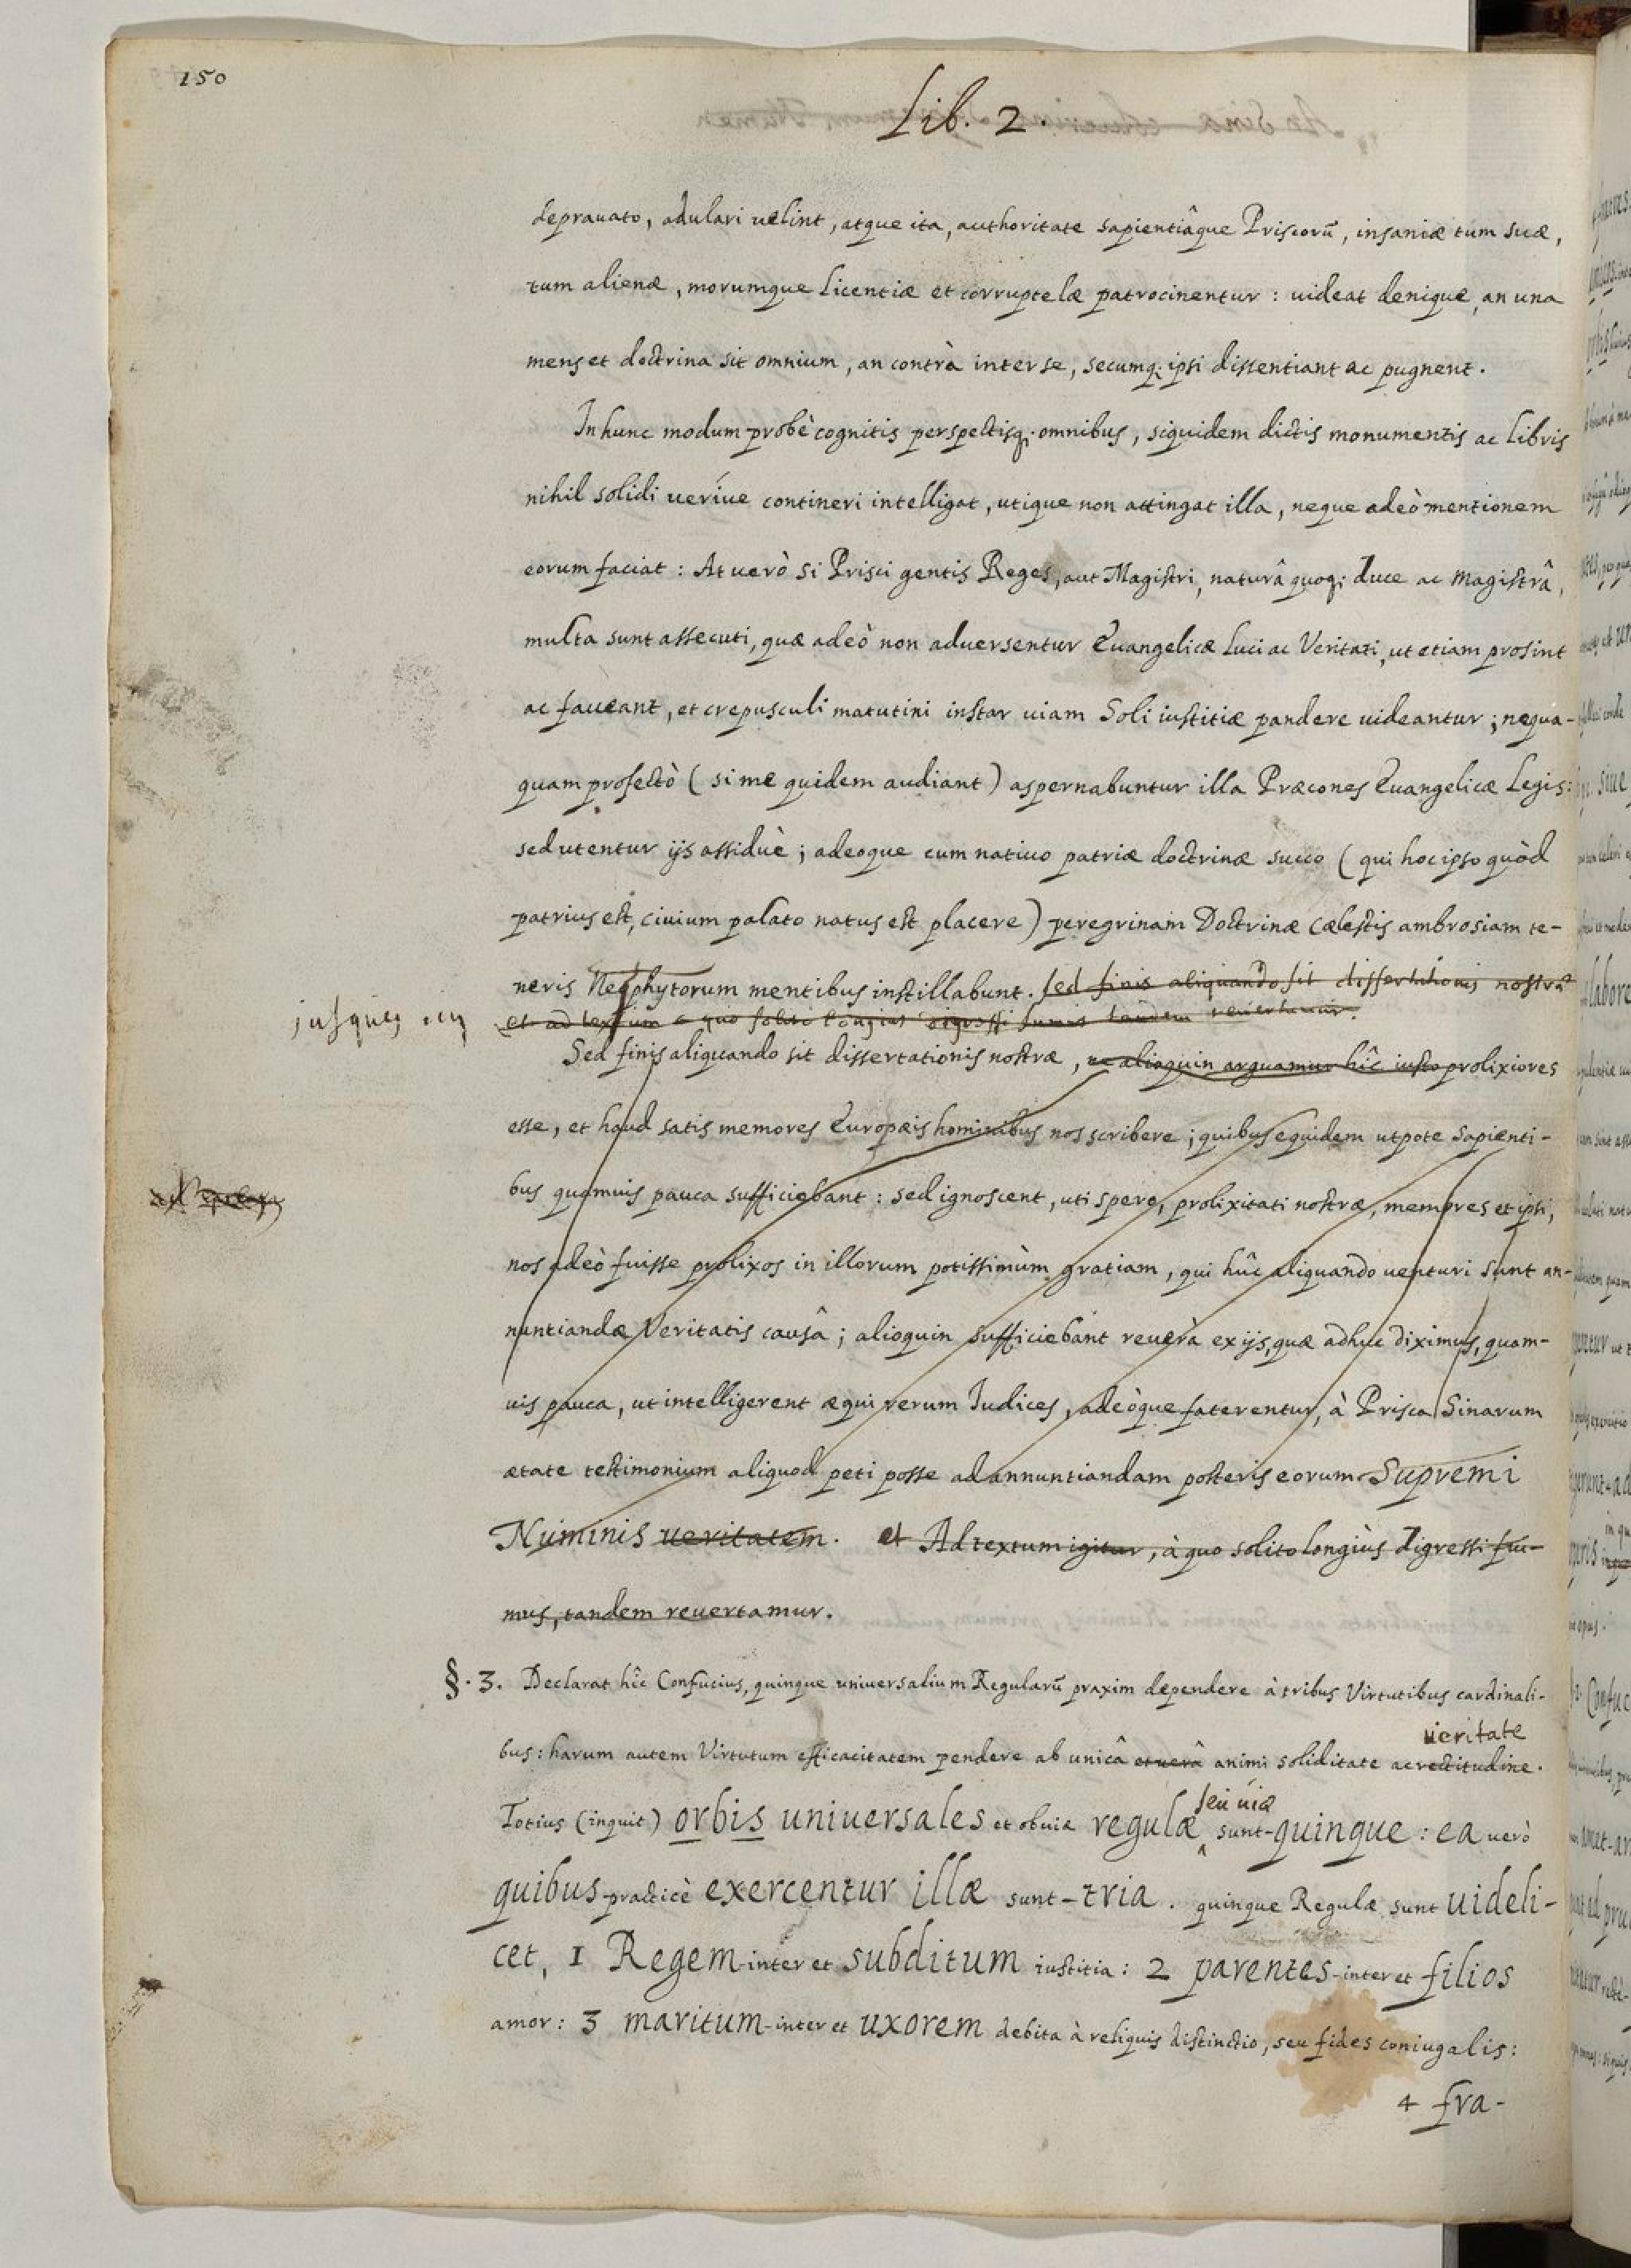 150
Lib. 2.
deprauato, adulari uelint, atque ita, authoritate sapientiâque Priscorũ, insaniæ tum suæ,
tum alienæ, morumque licentiæ et corruptelæ patrocinentur : uideat denique, an una
mens et doctrina sit omnium, an contrà inter se, secumq; ipsi dissentiant ac pugnent.
In hunc modum probè cognitis perspectisq; omnibus, siquidem dictis monumentis ac libris
nihil solidi ueríue contineri intelligat, utique non attingat illa, neque adeò mentionem
eorum faciat : At uerò si Prisci gentis Reges, aut Magistri, naturâ quoq; duce ac magistrâ,
multa sunt assecuti, quæ adeò non aduersentur Euangelicæ luci ac Veritati, ut etiam prosint
ac faueant, et crepusculi matutini instar uiam Soli iustitiæ pandere uideantur ; nequa-
quam profectò ( si me quidem audiant ) aspernabuntur illa Præcones Euangelicæ Legis :
sed utentur ijs assiduè ; adeoque cum natiuo patriæ doctrinæ succo ( qui hoc ipso quòd
patrius est, ciuium palato natus est placere ) peregrinam Doctrinæ cælestis ambrosiam te-
neris Neophytorum mentibus instillabunt. sed finis aliquando sit dissertationis nostræ
et ad textum a quo solito longius digressi sumus tandem reuertamur.
jusques icy
Sed finis aliquando sit dissertationis nostræ, ne alioquin arguamur hîc iusto prolixiores
esse, et haud satis memores Europæis hominibus nos scribere ; quibus equidem utpote sapienti-
bus quamuis pauca sufficiebant : sed ignoscent, uti spero, prolixitati nostræ, memores et ipsi,
nos adeò fuisse prolixos in illorum potissimùm gratiam, qui hûc aliquando uenturi sunt an-
nuntiandæ Veritatis causâ ; alioquin sufficiebant reuerà ex ijs, quæ adhuc diximus, quam-
uis pauca, ut intelligerent æqui rerum Iudices, adeòque faterentur, à Prisca Sinarum
ætate testimonium aliquod peti posse ad annuntiandam posteris eorum Supremi
Numinis ueritatem. et Ad textum igitur, à quo solito longiùs digressi fui-
mus, tandem reuertamur.
§. 3. Declarat hîc Confucius, quinque uniuersalium Regularũ praxim dependere à tribus Virtutibus cardinali-
bus : harum autem Virtutum efficacitatem pendere ab unicâ et uerâ animi soliditate ac rectitudine. ueritate
Totius (inquit) orbis uniuersales et obuiæ regulæ seu uiæ sunt-quinque : ea uerò
quibus-practicè exercentur illæ sunt-tria. quinque Regulæ sunt uideli-
cet, 1 Regem-inter et subditum iustitia : 2 parentes-inter et filios
amor : 3 maritum-inter et uxorem debita à reliquis distinctio, seu fides coniugalis :
4 fra-